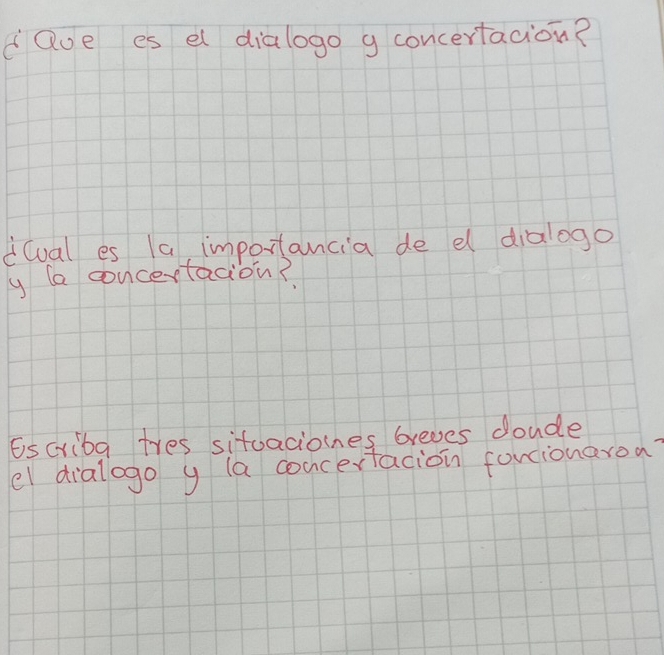 ¿Que es el dialogo y concertación?
¿Cual es la importancia de el dialogo
y la concertación?
Escriba tres situaciones breves donde
el dialogo y la concertación funcionaron-